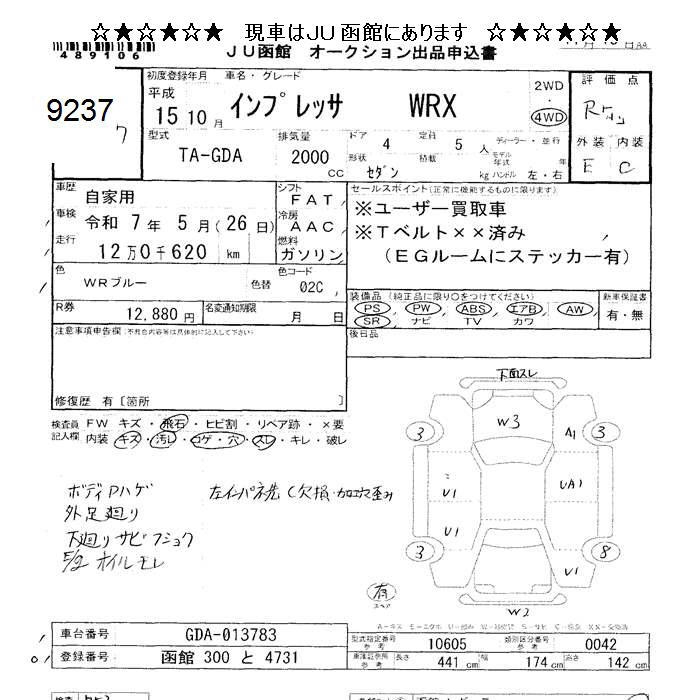 ☆★☆★☆★☆ 現車はJU函館にあります ☆★☆★☆★☆
489106
JU函館 オークション出品申込書
9237
7
初度登録年月 車名・グレード
平成 15 10月 インプレッサ WRX
2WD
4WD
評価点
外装 内装
E C
型式 排気量 ドア 4 定員 5 人 ディーラー・並行
TA-GDA 2000 CC 形状 セダン 積載 kg ハンドル 左・右
モデル年式 年
車歴 自家用
シフト FAT
セールスポイント(正常に機能するものに限ります)
車検 令和 7年 5月(26日)
冷房 AAC
※ユーザー買取車
走行 12万0千620 km
燃料 ガソリン
※Tベルト××済み
(EGルームにステッカー有)
色 WRブルー 色替
色コード 02C
装備品 (純正品に限り○をつけてください) 新車保証書
PS・PW・ABS・エアB・AW・
SR・ナビ TV カワ
有・無
R券 12,880円 名変通知期限 月 日
後日品
注意事項申告欄(不具合内容等は具体的に記入して下さい)
修復歴 有 [箇所 ]
検査員記入欄
FW キズ・飛石・ヒビ割・リペア跡・×要
内装 キズ・汚レ・コゲ・穴・スレ・キレ・破レ
下面スレ
W3
3
A1
3
U1
UA1
U1
3
8
U1
有
スペア
W2
ボディPハゲ
外足廻り
下廻りサビフショク
E/g オイルモレ
車台番号 GDA-013783
登録番号 函館 300 と 4731
型式指定番号 参考 10605 類別区分番号 参考 0042
長さ 441 cm 幅 174 cm 高さ 142 cm